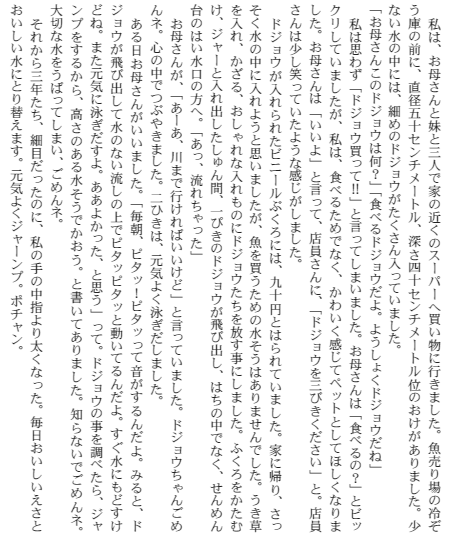 私は、お母さんと妹と三人で家の近くのスーパーへ買い物に行きました。魚売り場の冷ぞ
う庫の前に、直径五十センチメートル、深さ四十センチメートル位のおけがありました。少
ない水の中には、細めのドジョウがたくさん入っていました。
「お母さんこのドジョウは何？」「食べるドジョウだよ。ようしょくドジョウだね」
　私は思わず「ドジョウ買って‼」と言ってしまいました。お母さんは「食べるの？」とビッ
クリしていましたが、私は、食べるためでなく、かわいく感じてペットとしてほしくなりま
した。お母さんは「いいよ」と言って、店員さんに、「ドジョウを三びきください」と。店員
さんは少し笑っていたような感じがしました。
　ドジョウが入れられたビニールぶくろには、九十円とはられていました。家に帰り、さっ
そく水の中に入れようと思いましたが、魚を買うための水そうはありませんでした。うき草
を入れ、かざる、おしゃれな入れものにドジョウたちを放す事にしました。ふくろをかたむ
け、ジャーと入れ出したしゅん間、一ぴきのドジョウが飛び出し、はちの中でなく、せんめん
台のはい水口の方へ。「あっ、流れちゃった」
　お母さんが、「あーあ、川まで行ければいいけど」と言っていました。ドジョウちゃんごめ
んネ。心の中でつぶやきました。二ひきは、元気よく泳ぎだしました。
　ある日お母さんがいいました。「毎朝、ピタッ！ピタッって音がするんだよ。みると、ド
ジョウが飛び出して水のない流しの上でピタッピタッと動いてるんだよ。すぐ水にもどすけ
どね。また元気に泳ぎだすよ。ああよかった、と思う」って。ドジョウの事を調べたら、ジャ
ンプをするから、高さのある水そうでかおう。と書いてありました。知らないでごめんネ。
大切な水をうばってしまい、ごめんネ。
　それから三年たち、細目だったのに、私の手の中指より太くなった。毎日おいしいえさと
おいしい水にとり替えます。元気よくジャーンプ。ポチャン。